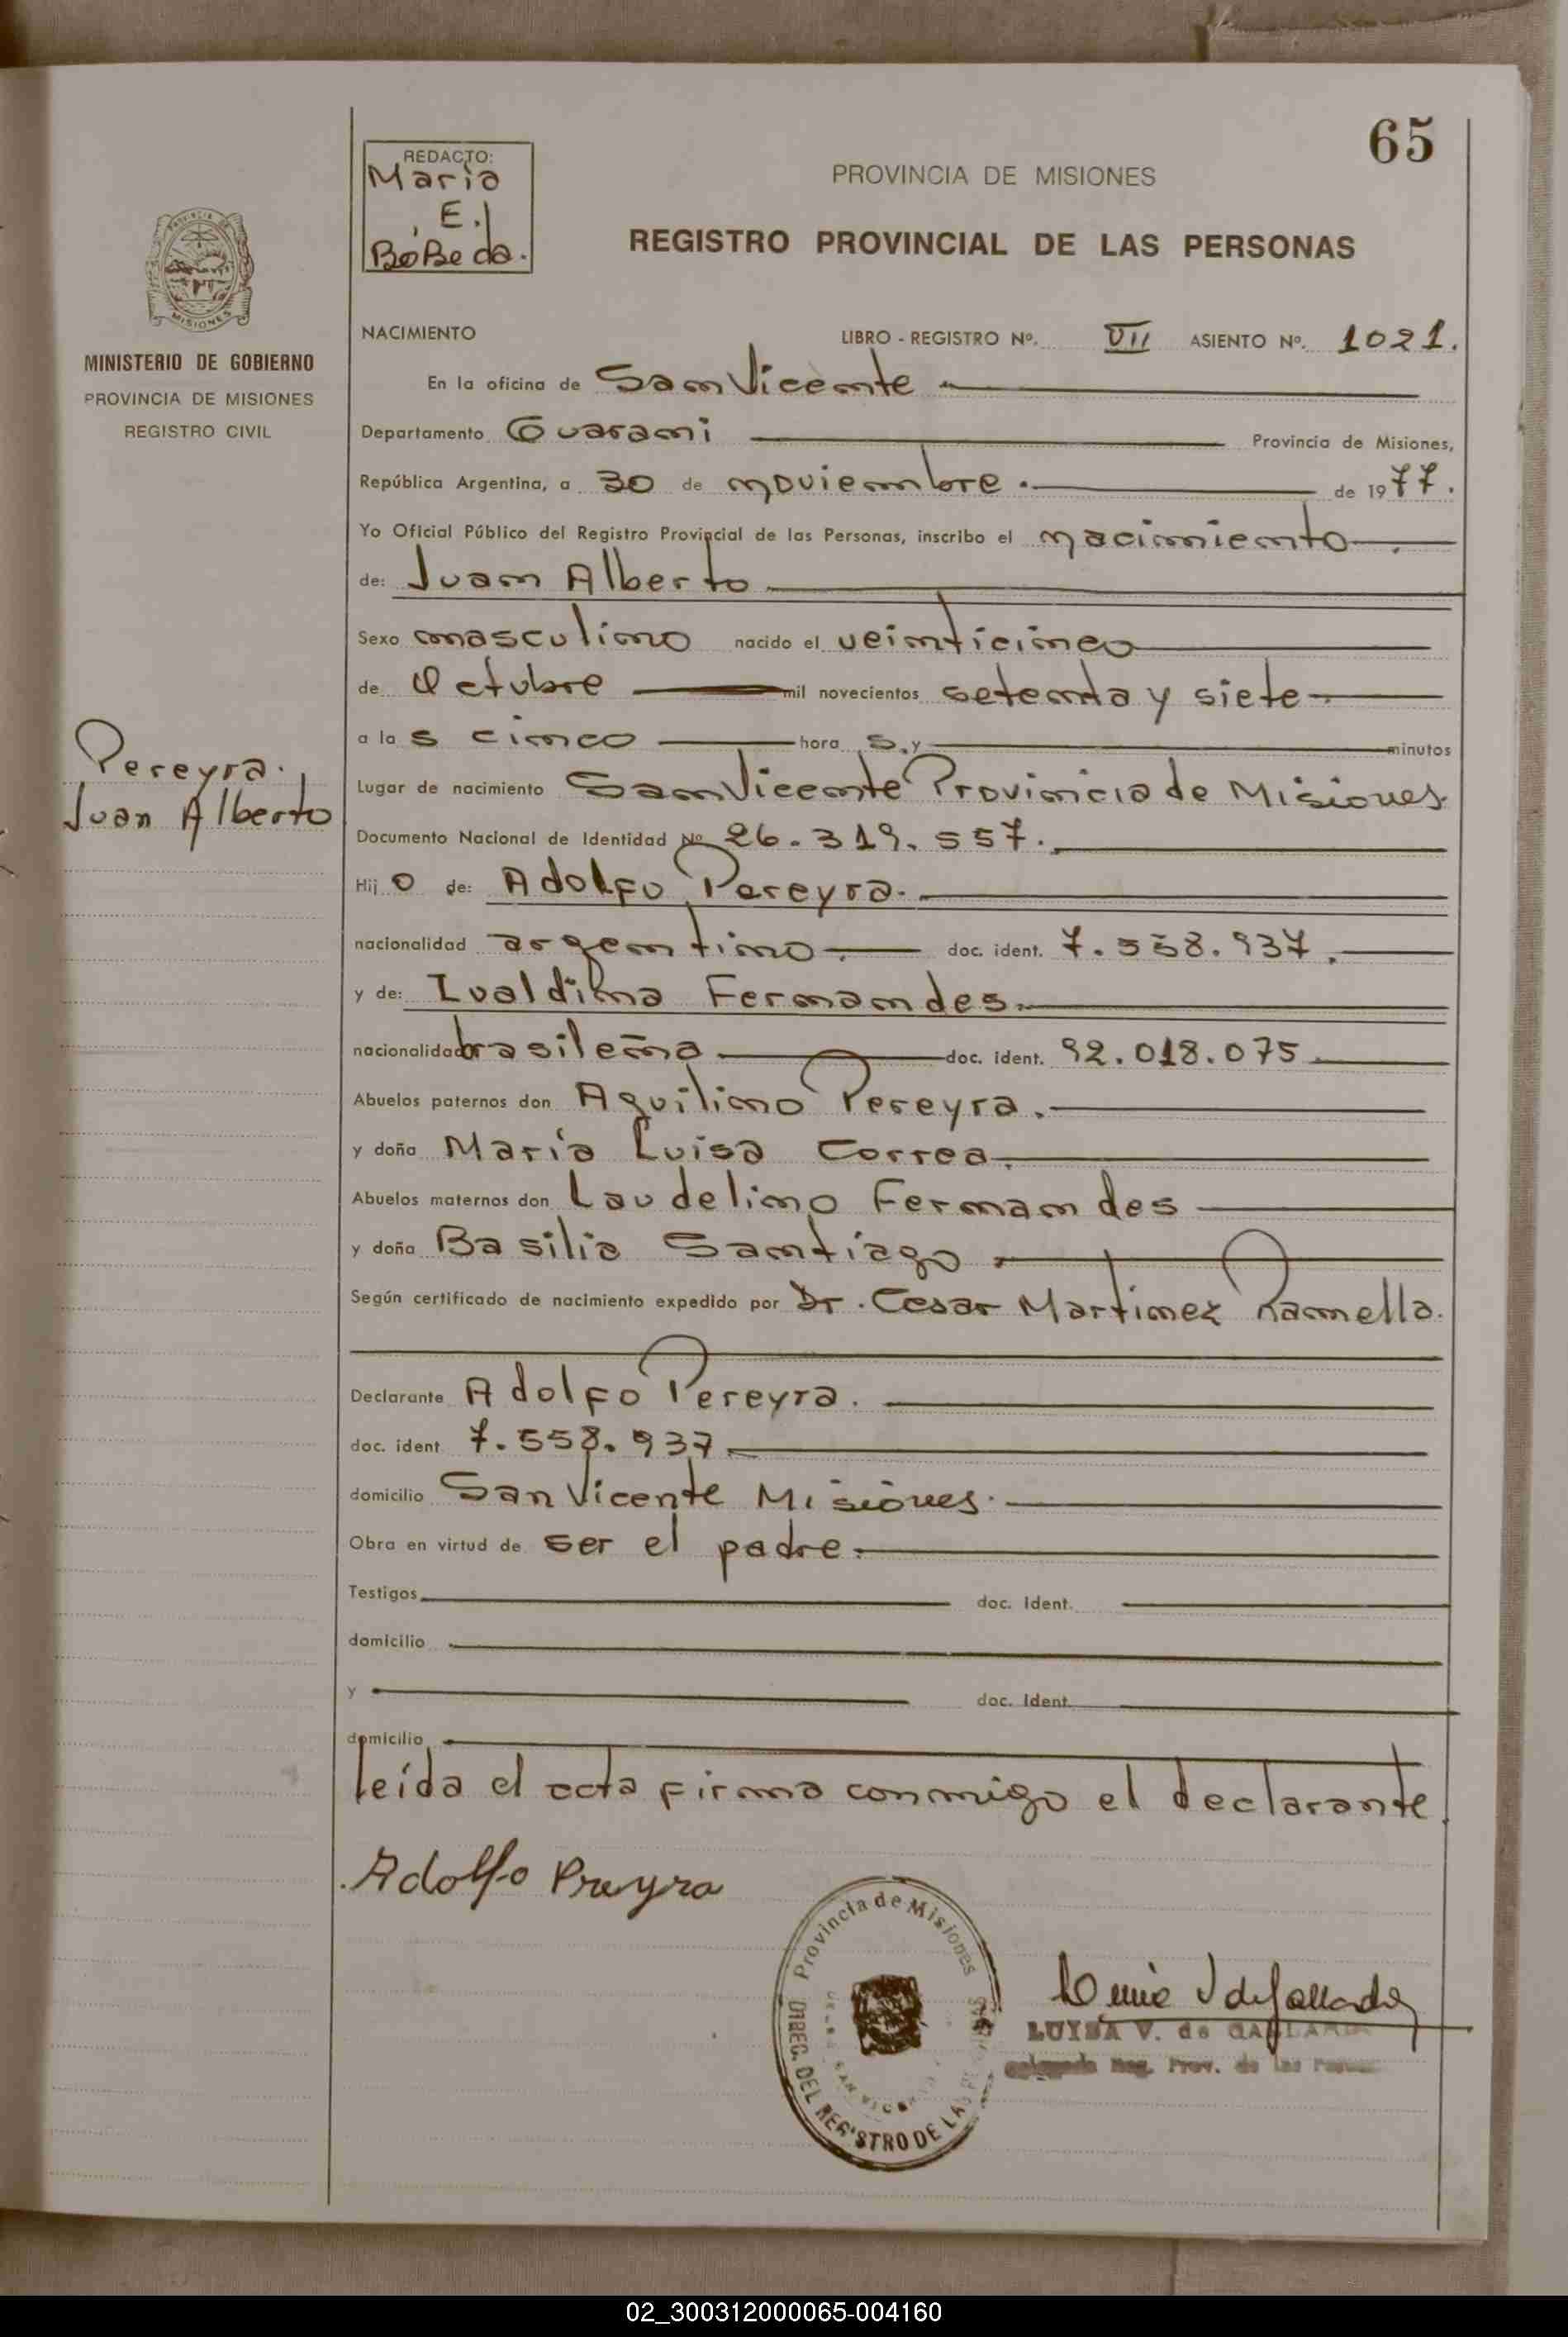 65
REDACTO:
María
E.
BoBeda.
PROVINCIA DE MISIONES
REGISTRO PROVINCIAL DE LAS PERSONAS
MISIONES
MINISTERIO DE GOBIERNO
PROVINCIA DE MISIONES
REGISTRO CIVIL
NACIMIENTO LIBRO - REGISTRO Nº. VII ASIENTO Nº. 1021.
En la oficina de San Vicente
Departamento Guarani Provincia de Misiones,
República Argentina, a 30 de noviembre. de 1977.
Yo Oficial Público del Registro Provincial de las Personas, inscribo el nacimiento.
de: Juan Alberto
Sexo masculino nacido el veinticinco
de Octubre mil novecientos setenta y siete
a las cinco horas. y minutos
Pereyra.
Juan Alberto
Lugar de nacimiento San Vicente Provincia de Misiones
Documento Nacional de Identidad Nº 26.319.557.
Hijo de: Adolfo Pereyra.
nacionalidad argentino. doc. ident. 7.558.937.
y de: Ivaldina Fernandes.
nacionalidad brasileña doc. ident. 92.018.075
Abuelos paternos don Aquilino Pereyra.
y doña María Luisa Correa.
Abuelos maternos don Laudelino Fernandes
y doña Basilia Santiago.
Según certificado de nacimiento expedido por Dr. Cesar Martinez Ramella.
Declarante Adolfo Pereyra.
doc. ident. 7.558.937
domicilio San Vicente Misiones.
Obra en virtud de ser el padre.
Testigos doc. Ident.
domicilio
y doc. Ident.
domicilio
leída el acta firma conmigo el declarante
Adolfo Preyra
Provincia de Misiones
DIREC. DEL REGISTRO DE LAS
LUISA V. de
Reg. Prov. de las
02_300312000065-004160